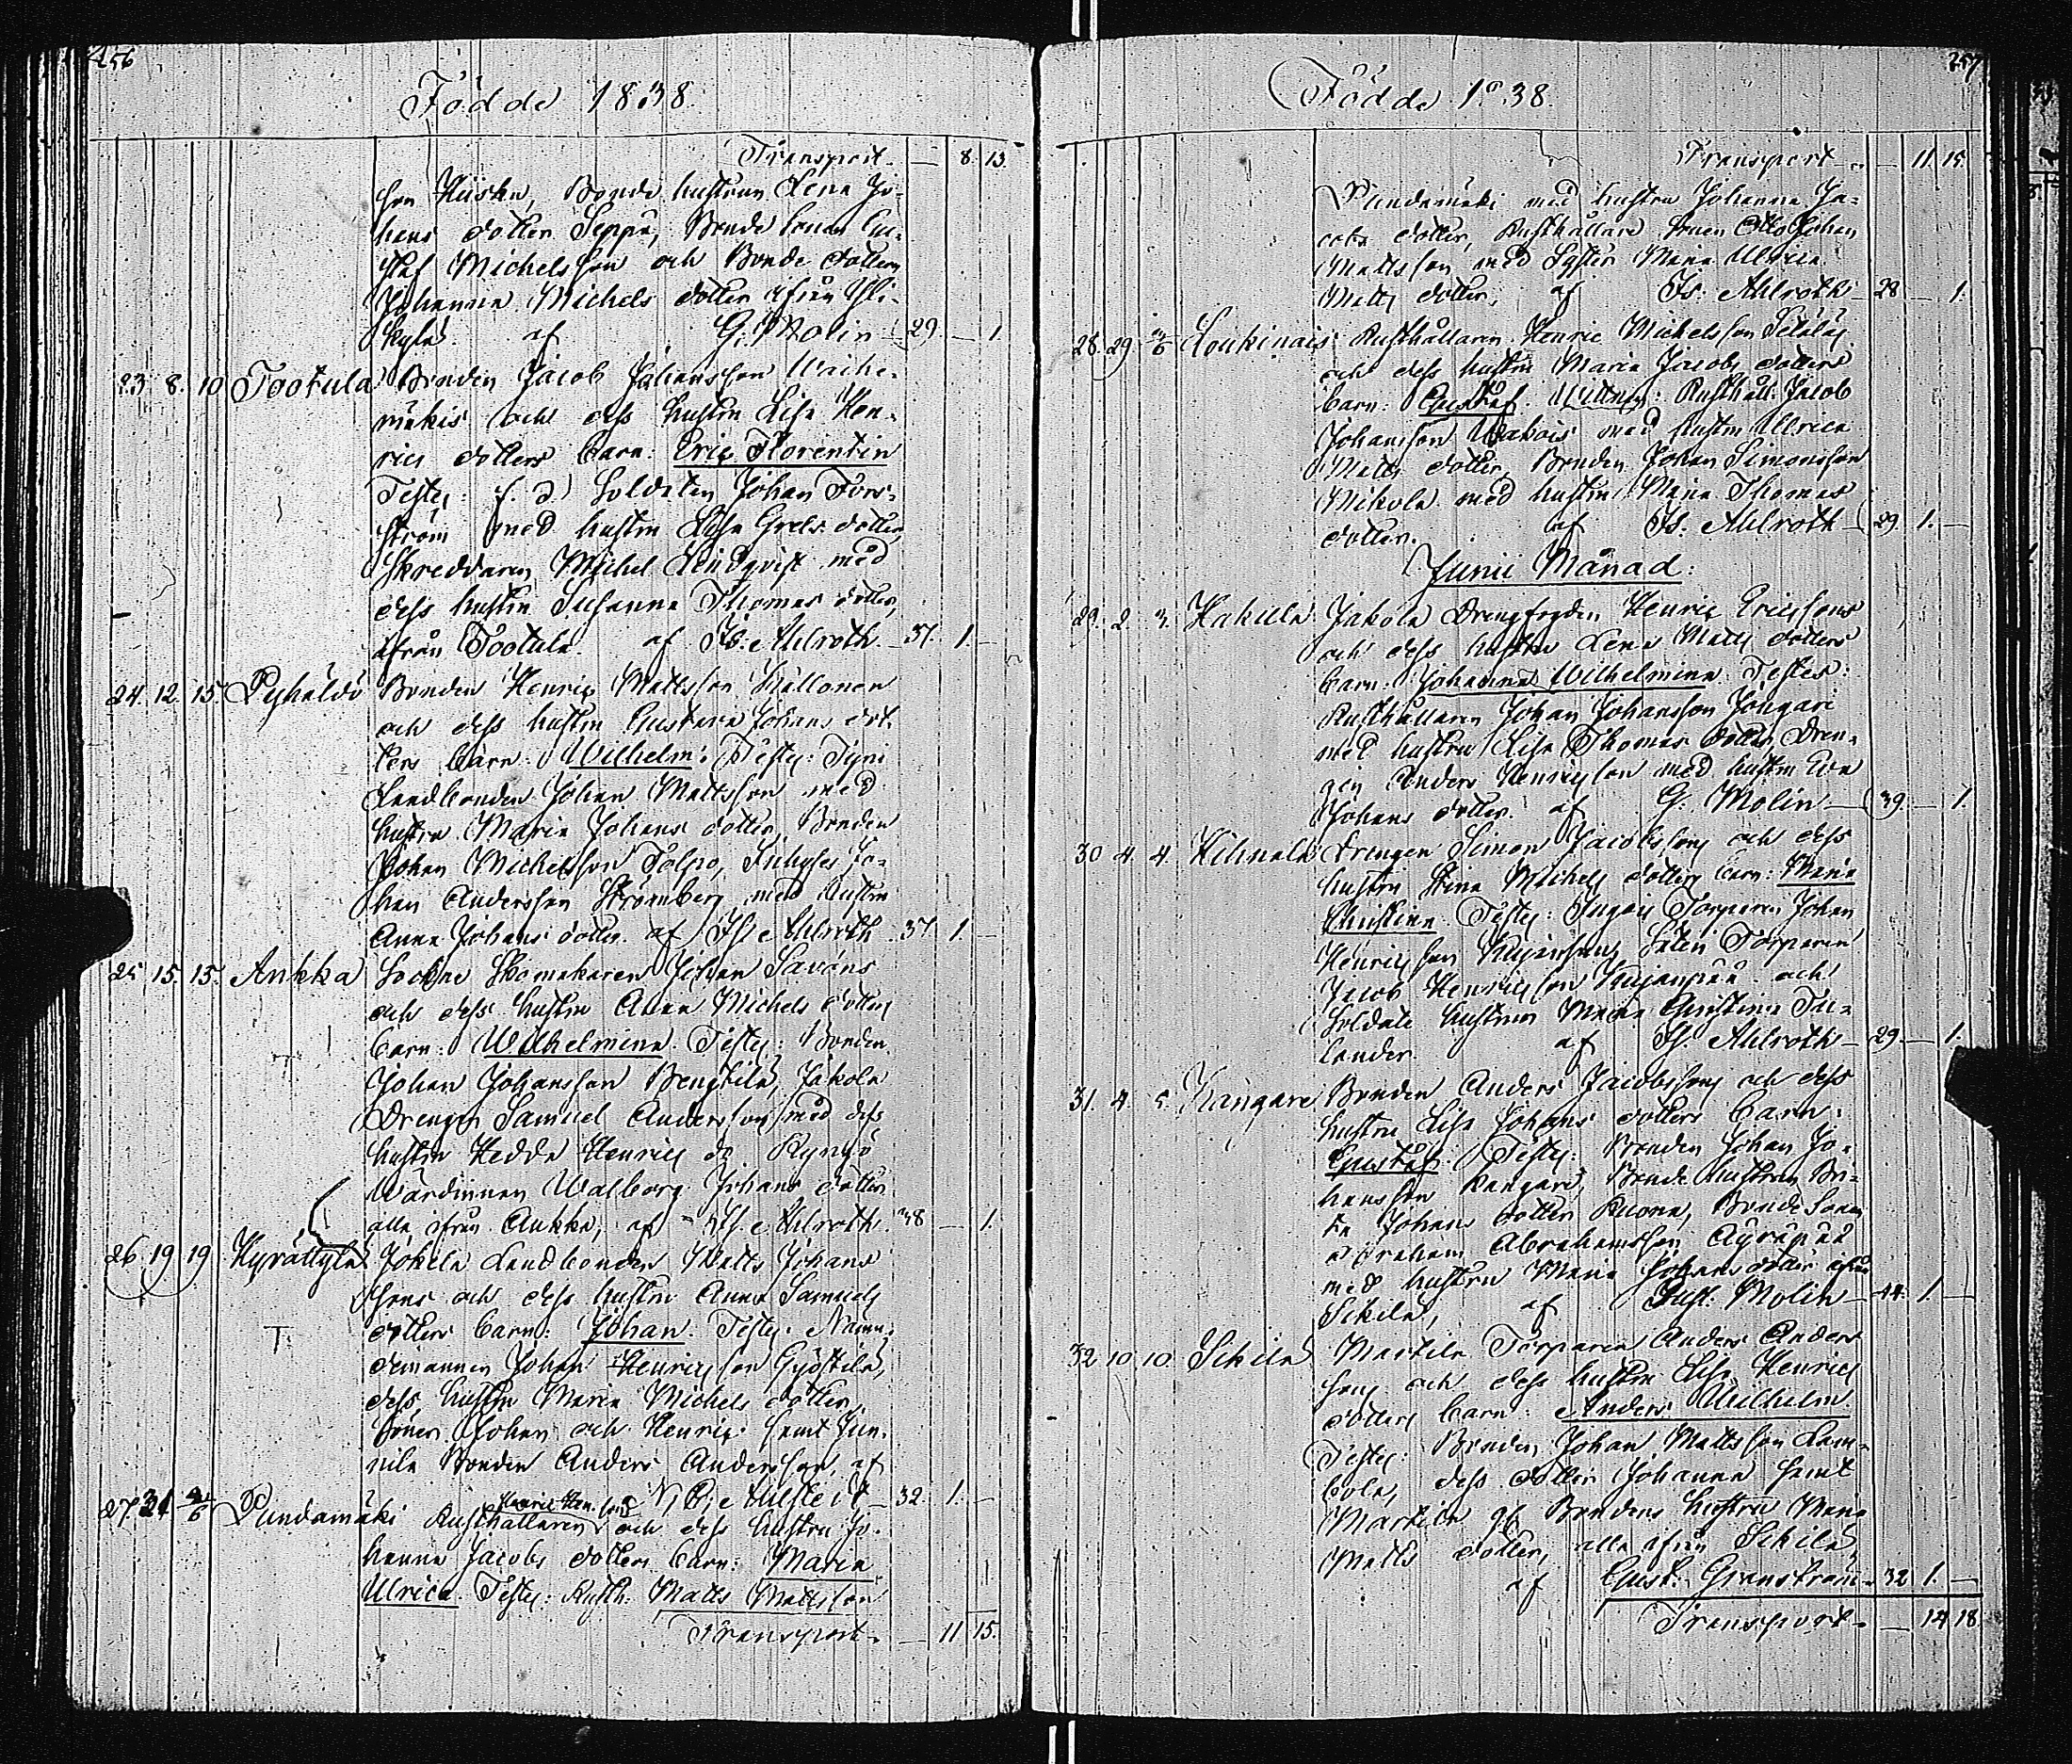 256
Födde 1838.
Transport. — 8. 13.
son Kiiska, Bonde hustrun Lena Jo-
hans dotter Seppä, Bonde sonen Gu-
staf Michelsson och Bonde dottern
Johanna Michels dotter ifrån Yli-
kylä. af G. Molin 29. — 1.
23. 8. 10 Tootula Bonden Jacob Johansson
mäkis och dess hustru Lisa Hen-
rics dotters barn: Eric Florentin
Testes: f. d. Soldaten Johan Fors-
ström med hustru Lisa Grels dotter,
Skreddaren Michel Lindqvist med
dess hustru Susanna Thomas dotter,
ifrån Tootula. af Is. Ahlroth. 37 1. —
24. 12. 15. Pyhäldö Bonden Henric Mattsson Kallonen
och dess hustru Gustava Johans dot-
ters barn: Wilhelm. Testes: Tyni
Landbonden Johan Mattsson med
hustru Maria Johans dotter, Bonden
Johan Michelsson Tolpo, Inhyses Jo-
han Andersson Strömberg med hustru
Anna Johans dotter. af Is. Ahlroth. 37 1. —
25. 15. 15. Ankka Sockne Skomakaren Johan Savóns
och dess hustru Anna Michels dotters
barn: Wilhelmina. Testes: Bonden
Johan Johansson Bengtilä, Jakola
Drengen Samuel Andersson med dess
hustru Hedda Henrics dr
Wärdinnan Walborg Johans dotter
alla ifrån Ankka, af Is. Ahlroth. 38 — 1.
26. 19. 19 Hyrättylä Jokela Landbonden Matts Johans
sons och dess hustru Anna Samuels
dotters barn: Johan. Testes. Nämn-
demannen Johan Henricsson Gjöstilä,
dess hustru Maria Michels dotter,
söner Johan och Henric samt Jun-
nila Bonden Anders Andersson, af
32. 1. —
27. 31 Pundamäki Rusthållaren och dess hustru Jo-
hanna Jacobs dotters barn: Maria
Ulrica. Testes: Rusth: Matts Mattsson
Transport. — 11 15.
257
Födde 1838.
Transport — 11. 15.
Pundamäki med hustru Johanna Ja-
cobs dotter, Rusthållare Sonen Otto Johan
Mattsson med Syster Maria Ulrica
Matts dotter, af Is. Ahlroth 28 — 1.
28. 29 Loukinais Rusthållaren Henric Michelsson
och dess hustru Maria Jacobs dotters
barn: Gustaf. Wittnen: Rusthåll. Jacob
Johansson Wakois med hustru Ulrica
Matts dotter, Bonden Johan Simonsson
Mikola med hustru Maria Thomas
dotter. af Is. Ahlroth 29 1. —
Junii Månad:
29. 2. 3. Hakula Jakola Drengfogden Henric Ericssons
och dess hustru Lena Matts dotters
barn: Johanna Wilhelmina. Testes:
Rusthållaren Johan Johansson
med hustru Lisa Thomas dotter, Dren-
gen Anders Henricsson med hustru Eva
Johans dotter. af G. Molin 39. — 1.
30. 4. 4. Hihnala Drengen Simon Jacobssons och dess
hustru Stina Michels dotters barn: Maria
Christina. Testes: Torparen Johan
Henricsson Torparen
Jacob Henricsson Kujanpää och
Soldate hustrun Maria Christina Tu-
lander. af Is. Ahlroth 29 — 1.
31. 4. 5. Kangare Bonden Anders Jacobssons och dess
hustru Lisa Johans dotters barn:
Gustaf. Testes: Bonden Johan Jo-
hansson Kangare, Bonde hustrun Bri-
ta Johans dotter Ruona, Bonde Sonen
Abraham Abrahamsson Äyräpää
med hustru Maria Johans dotter ifrån
Sikilä, af Gust. Molin 44. 1. —
32 10. 10. Sikilä Martila Torparen Anders Anders
sons och dess hustru Lisa Henrics
dotters barn: Anders Wilhelm.
Testes: Bonden Johan Mattsson Lam-
bola, dess dotter Johanna samt
Martila gf. Bondens hustru Maria
Matts dotter, alla ifrån Sikilä,
af Gust. Granstram 32 1. —
Transport. — 14 18.